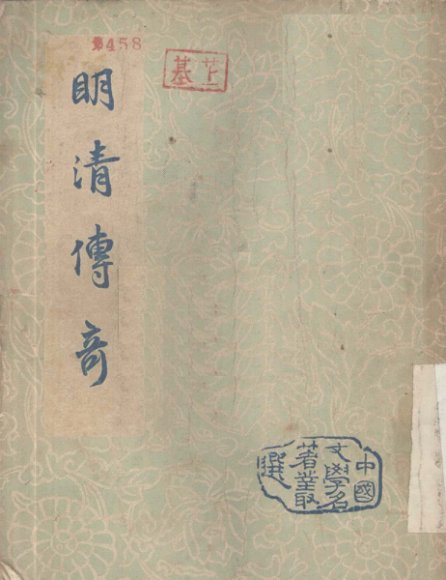 458
明清傳奇
中國
文學名
著叢
選